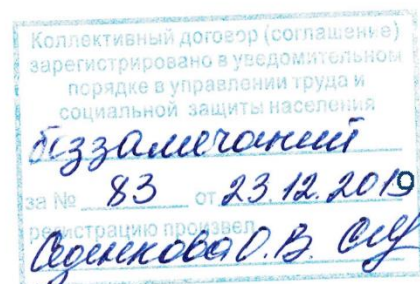 Коллективный договор (соглашение)
зарегистрировано в уведомительном
порядке в управлении труда и
социальной защиты населения
без замечаний
за № 83 от 23.12.2019
регистрацию произвел
О.В.